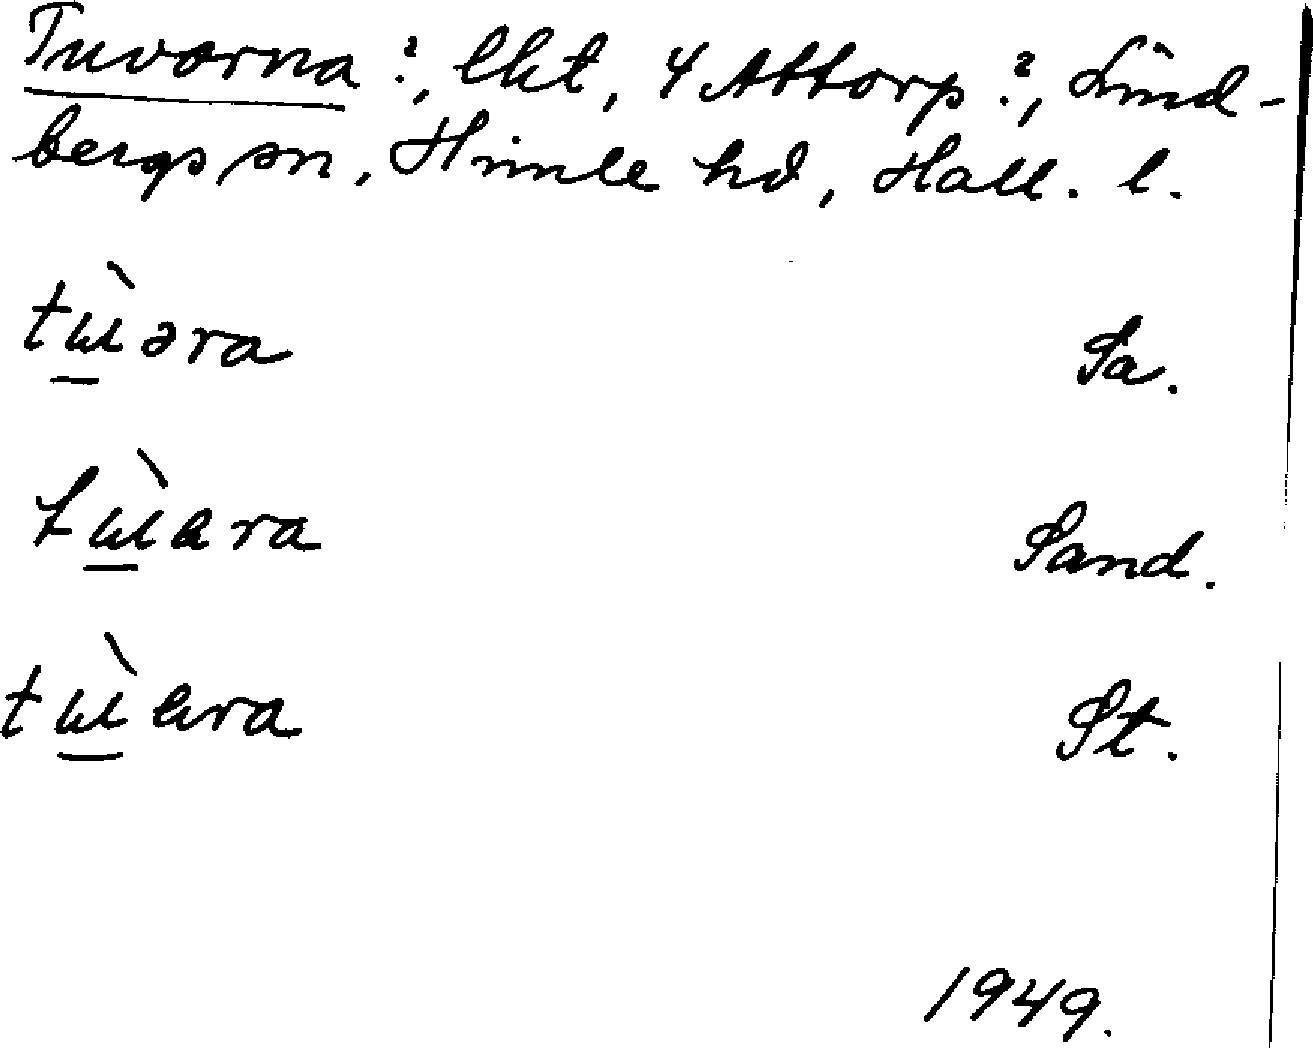 Tuvorna ?, lkt, 4 Attorp ?, Lind-
bergs sn, Himle hd, Hall. l.
tɯ̲̀əra Sa.
tɯ̲̀ara Sand.
tɯ̲̀ara St.
1949.